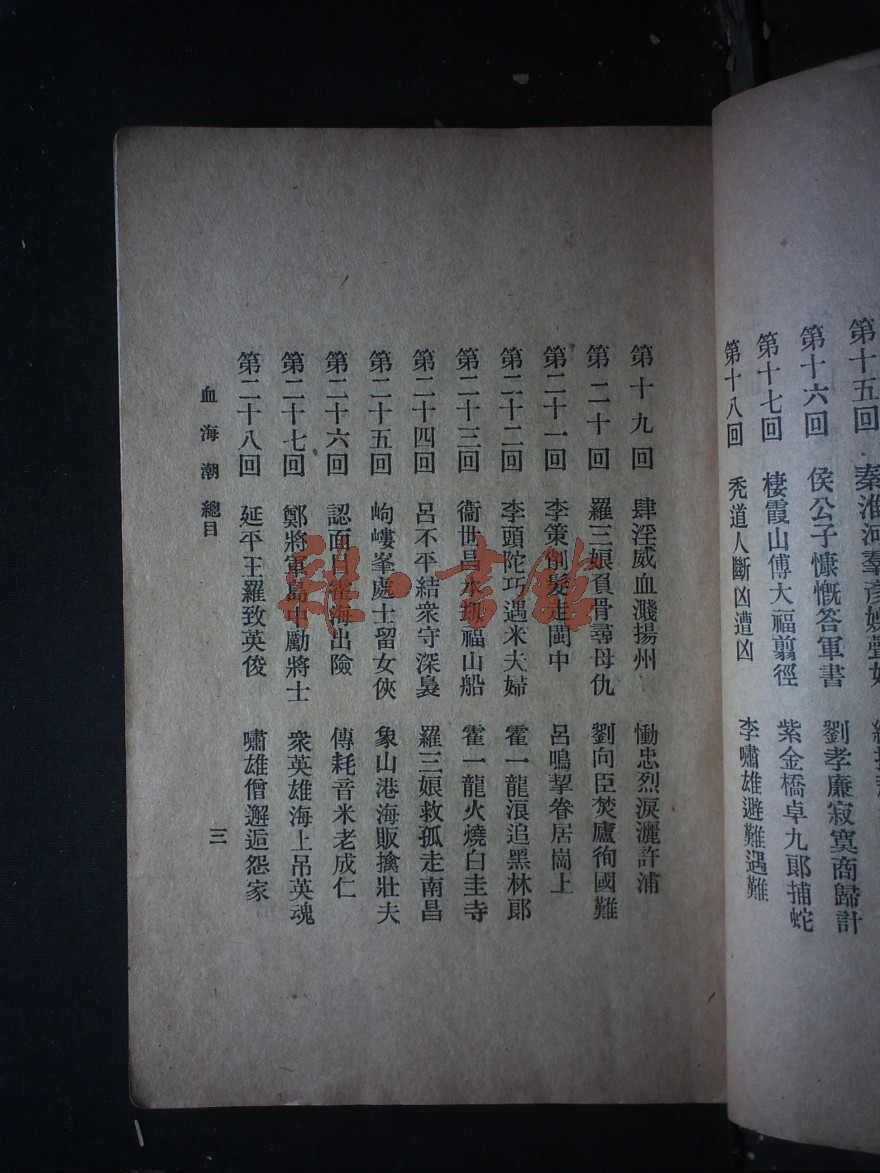 第十五回 秦淮河羣彥
第十六回 侯公子慷慨答軍書 劉孝廉寂寞商歸計
第十七回 棲霞山傅大福翦徑 紫金橋卓九郞捕蛇
第十八回 禿道人斷凶遭凶 李嘯雄避難遇難
第十九回 肆淫威血濺揚州 慟忠烈淚灑許浦
第二十回 羅三娘負骨尋母仇 劉向臣焚廬徇國難
第二十一回 李策削髮走閩中 呂鳴挈眷居崗上
第二十二回 李頭陀巧遇米夫婦 霍一龍浪追黑林郞
第二十三回 衞世昌水擲福山船 霍一龍火燒白圭寺
第二十四回 呂不平結衆守深裊 羅三娘救孤走南昌
第二十五回 岣嶁峯處士留女俠 象山港海販擒壯夫
第二十六回 認面目 海出險 傳耗音米老成仁
第二十七回 鄭將軍島中勵將士 衆英雄海上吊英魂
第二十八回 延平王羅致英俊 嘯雄僧邂逅怨家
血海潮 總目 三
雜·書館